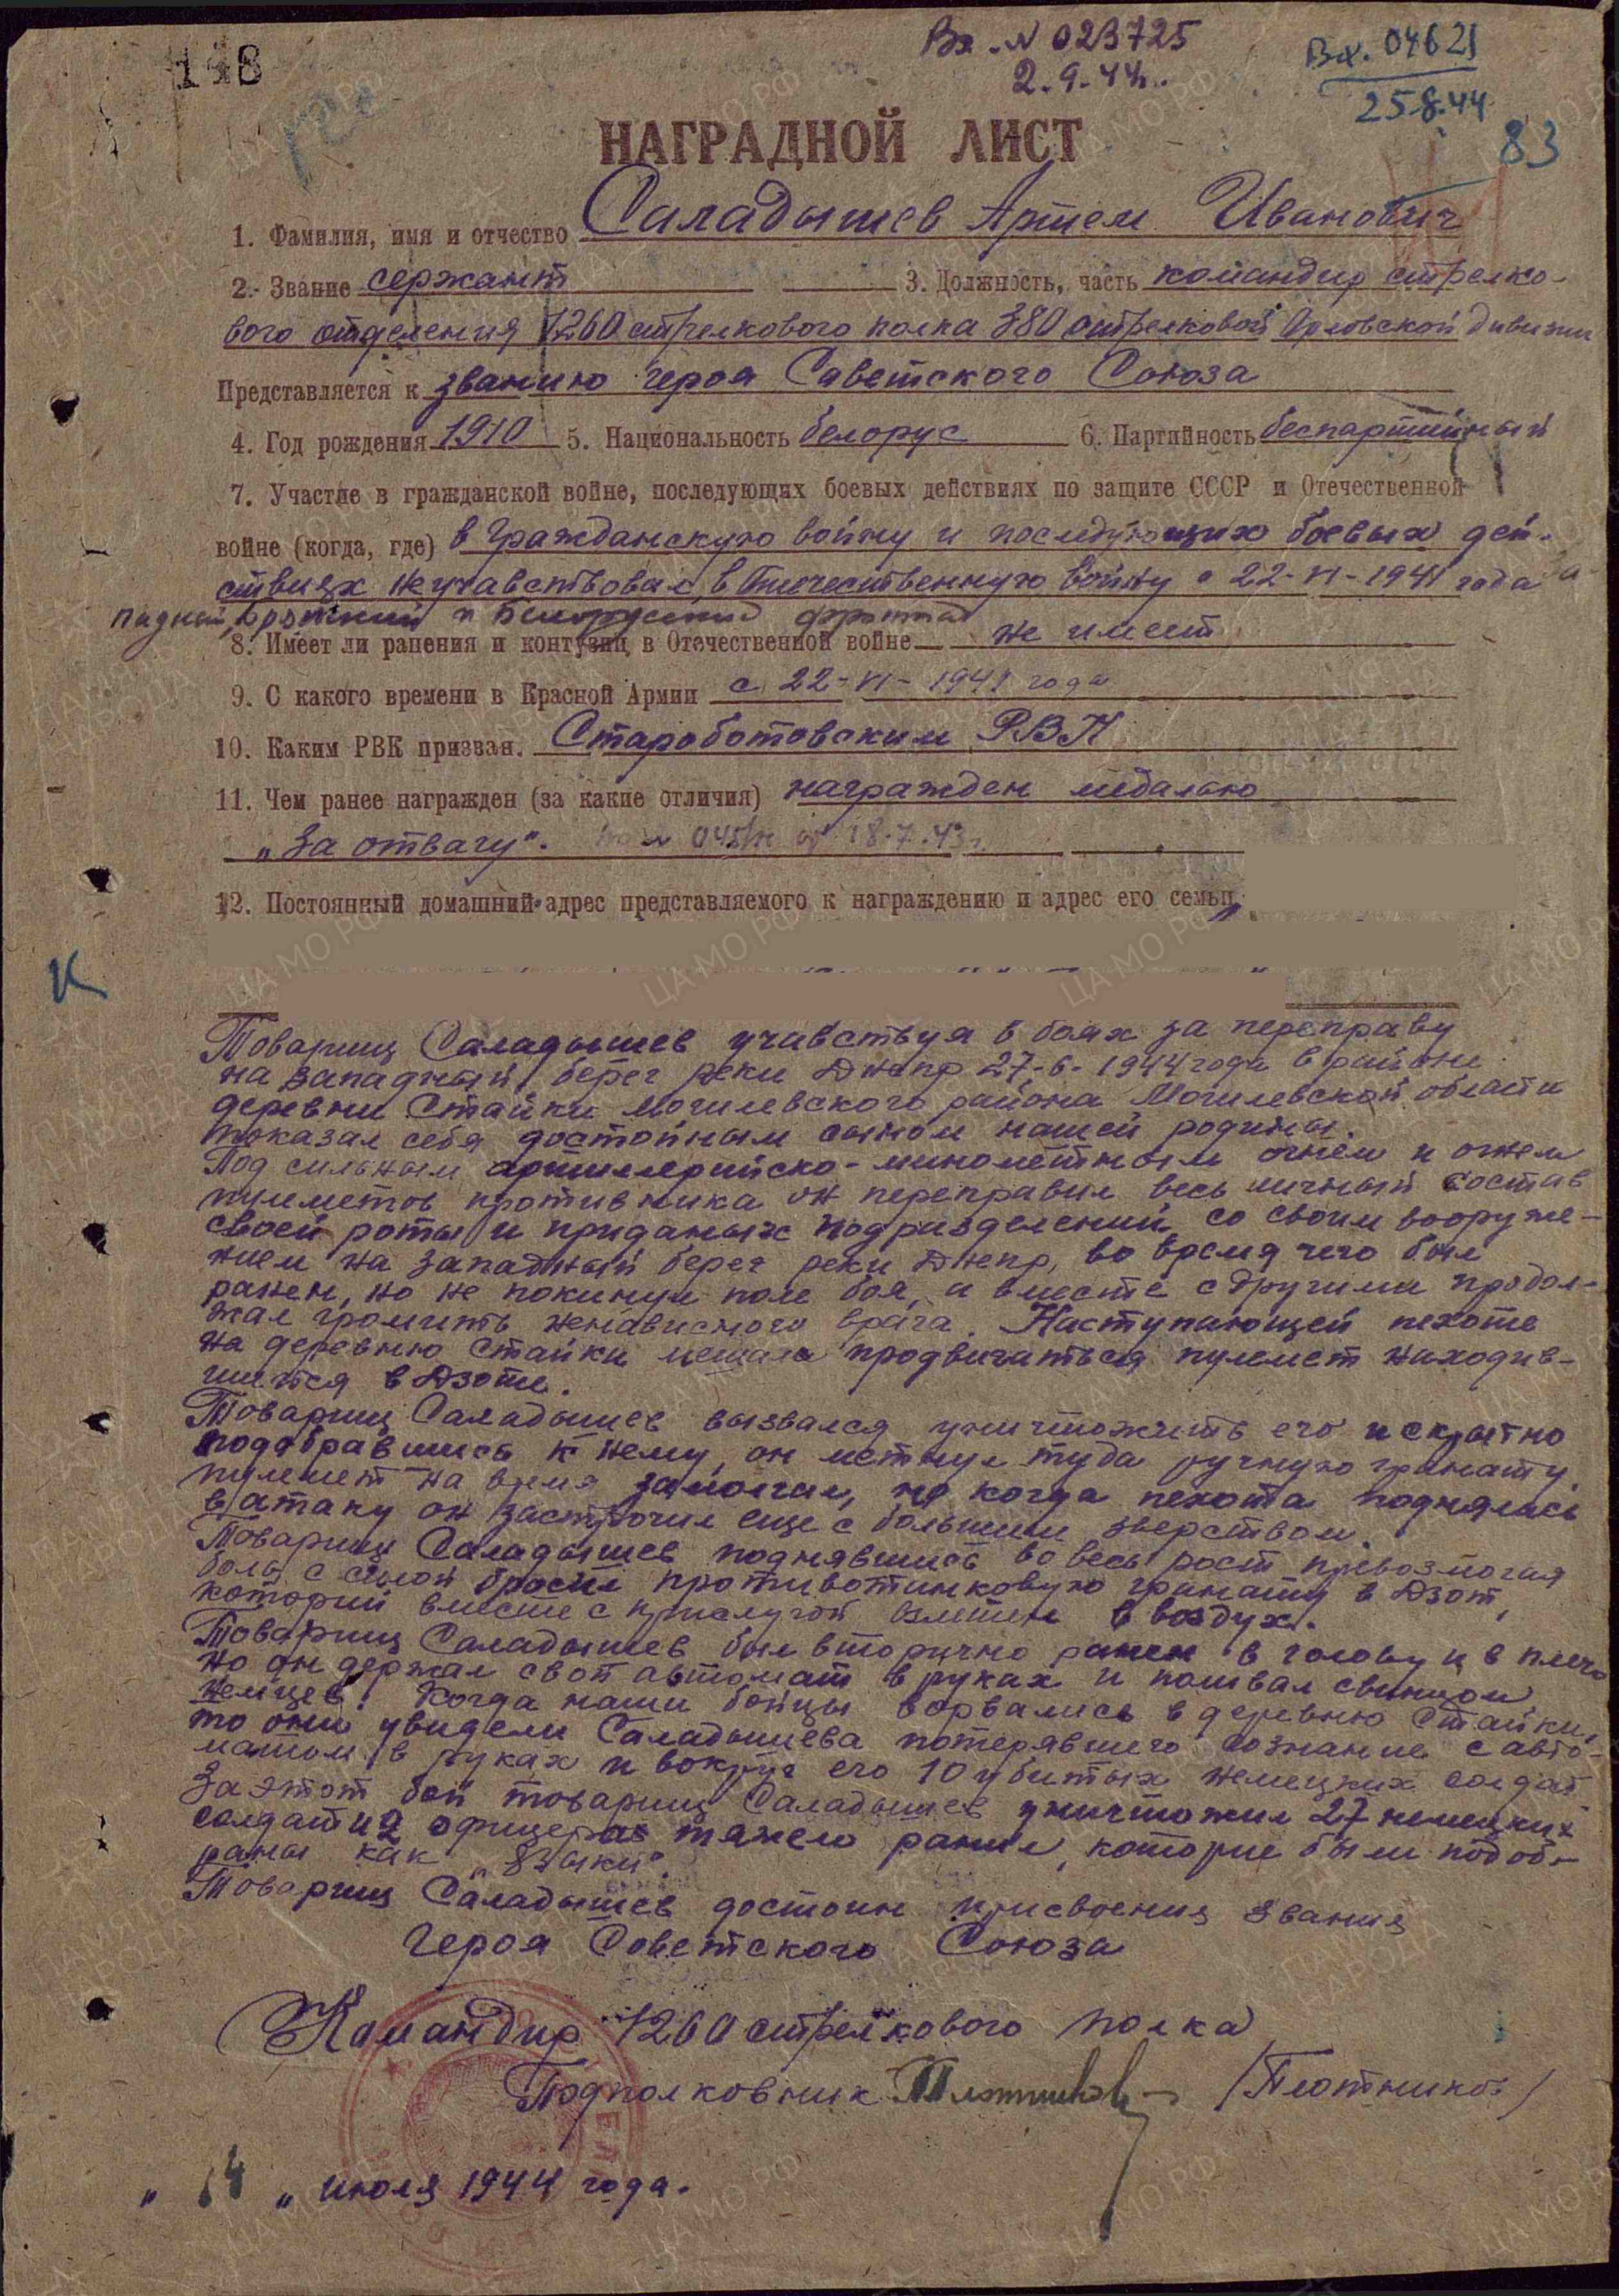 148
Вх. № 023725
2.9.44г.
Вх. 04621
25.8.44
83
НАГРАДНОЙ ЛИСТ
1. Фамилия, имя и отчество Саладышев Артем Иванович
2. Звание сержант 3. Должность, часть командир стрелко-
вого отделения 1260 стрелкового полка 380 стрелковой Орловской дивизии
Представляется к званию героя Советского Союза
4. Год рождения 1910 5. Национальность белорус 6. Партийность беспартийный
7. Участие в гражданской войне, последующих боевых действиях по защите СССР и Отечественной
войне (когда, где) в гражданскую войну и последующих боевых дей-
ствиях не учавствовал, в Отечественную войну с 22-VI-1941 года за-
падный, Брянский и Белорусский фронтах
8. Имеет ли ранения и контузии в Отечественной войне не имеет
9. С какого времени в Красной Армии с 22-VI-1941 года
10. Каким РВК призван. Староботовским РВК
11. Чем ранее награжден (за какие отличия) награжден медалью
„За отвагу". 18.7.43г.
12. Постоянный домашний адрес представляемого к награждению и адрес его семьи
К
Товарищ Саладышев учавствуя в боях за переправу
на западный берег реки Днепр 27-6-1944 года в районе
деревни Стайки Могилевского района Могилевской области
показал себя достойным сыном нашей родины.
Под сильным артиллерийско-минометным огнем и огнем
пулеметов противника он переправил весь личный состав
своей роты и приданых подразделений со своим вооруже-
нием на западный берег реки Днепр, во время чего был
ранен, но не покинул поле боя, и вместе с другими продол-
жал громить ненависного врага. Наступающей пехоте
на деревню Стайки мешал продвигаться пулемет находив-
шийся в Дзоте.
Товарищ Саладышев вызвался уничтожить его и скрытно
подобравшись к нему, он метнул туда ручную гранату,
пулемет на время замолчал, но когда пехота поднялась
в атаку он застрочил еще с большим зверством.
Товарищ Саладышев поднявшись во весь рост превозмогая
боль с силой бросил противотанковую гранату в Дзот,
который вместе с прислугой взлетел в воздух.
Товарищ Саладышев был вторично ранен в голову и в плечо
но он держал свой автомат в руках и поливал свинцом
немцев. Когда наши бойцы ворвались в деревню Стайки,
то они увидели Саладышева потерявшего сознание с авто-
матом в руках и вокруг его 10 убитых немецких солдат.
За этот бой товарищ Саладышев уничтожил 27 немецких
солдат и 2 офицеров тяжело ранил, которые были подоб-
раны как „Языки".
Товарищ Саладышев достоин присвоения звания
Героя Советского Союза
Командир 1260 стрелкового полка
Подполковник Плотников /Плотников/
„14„ июля 1944 года.